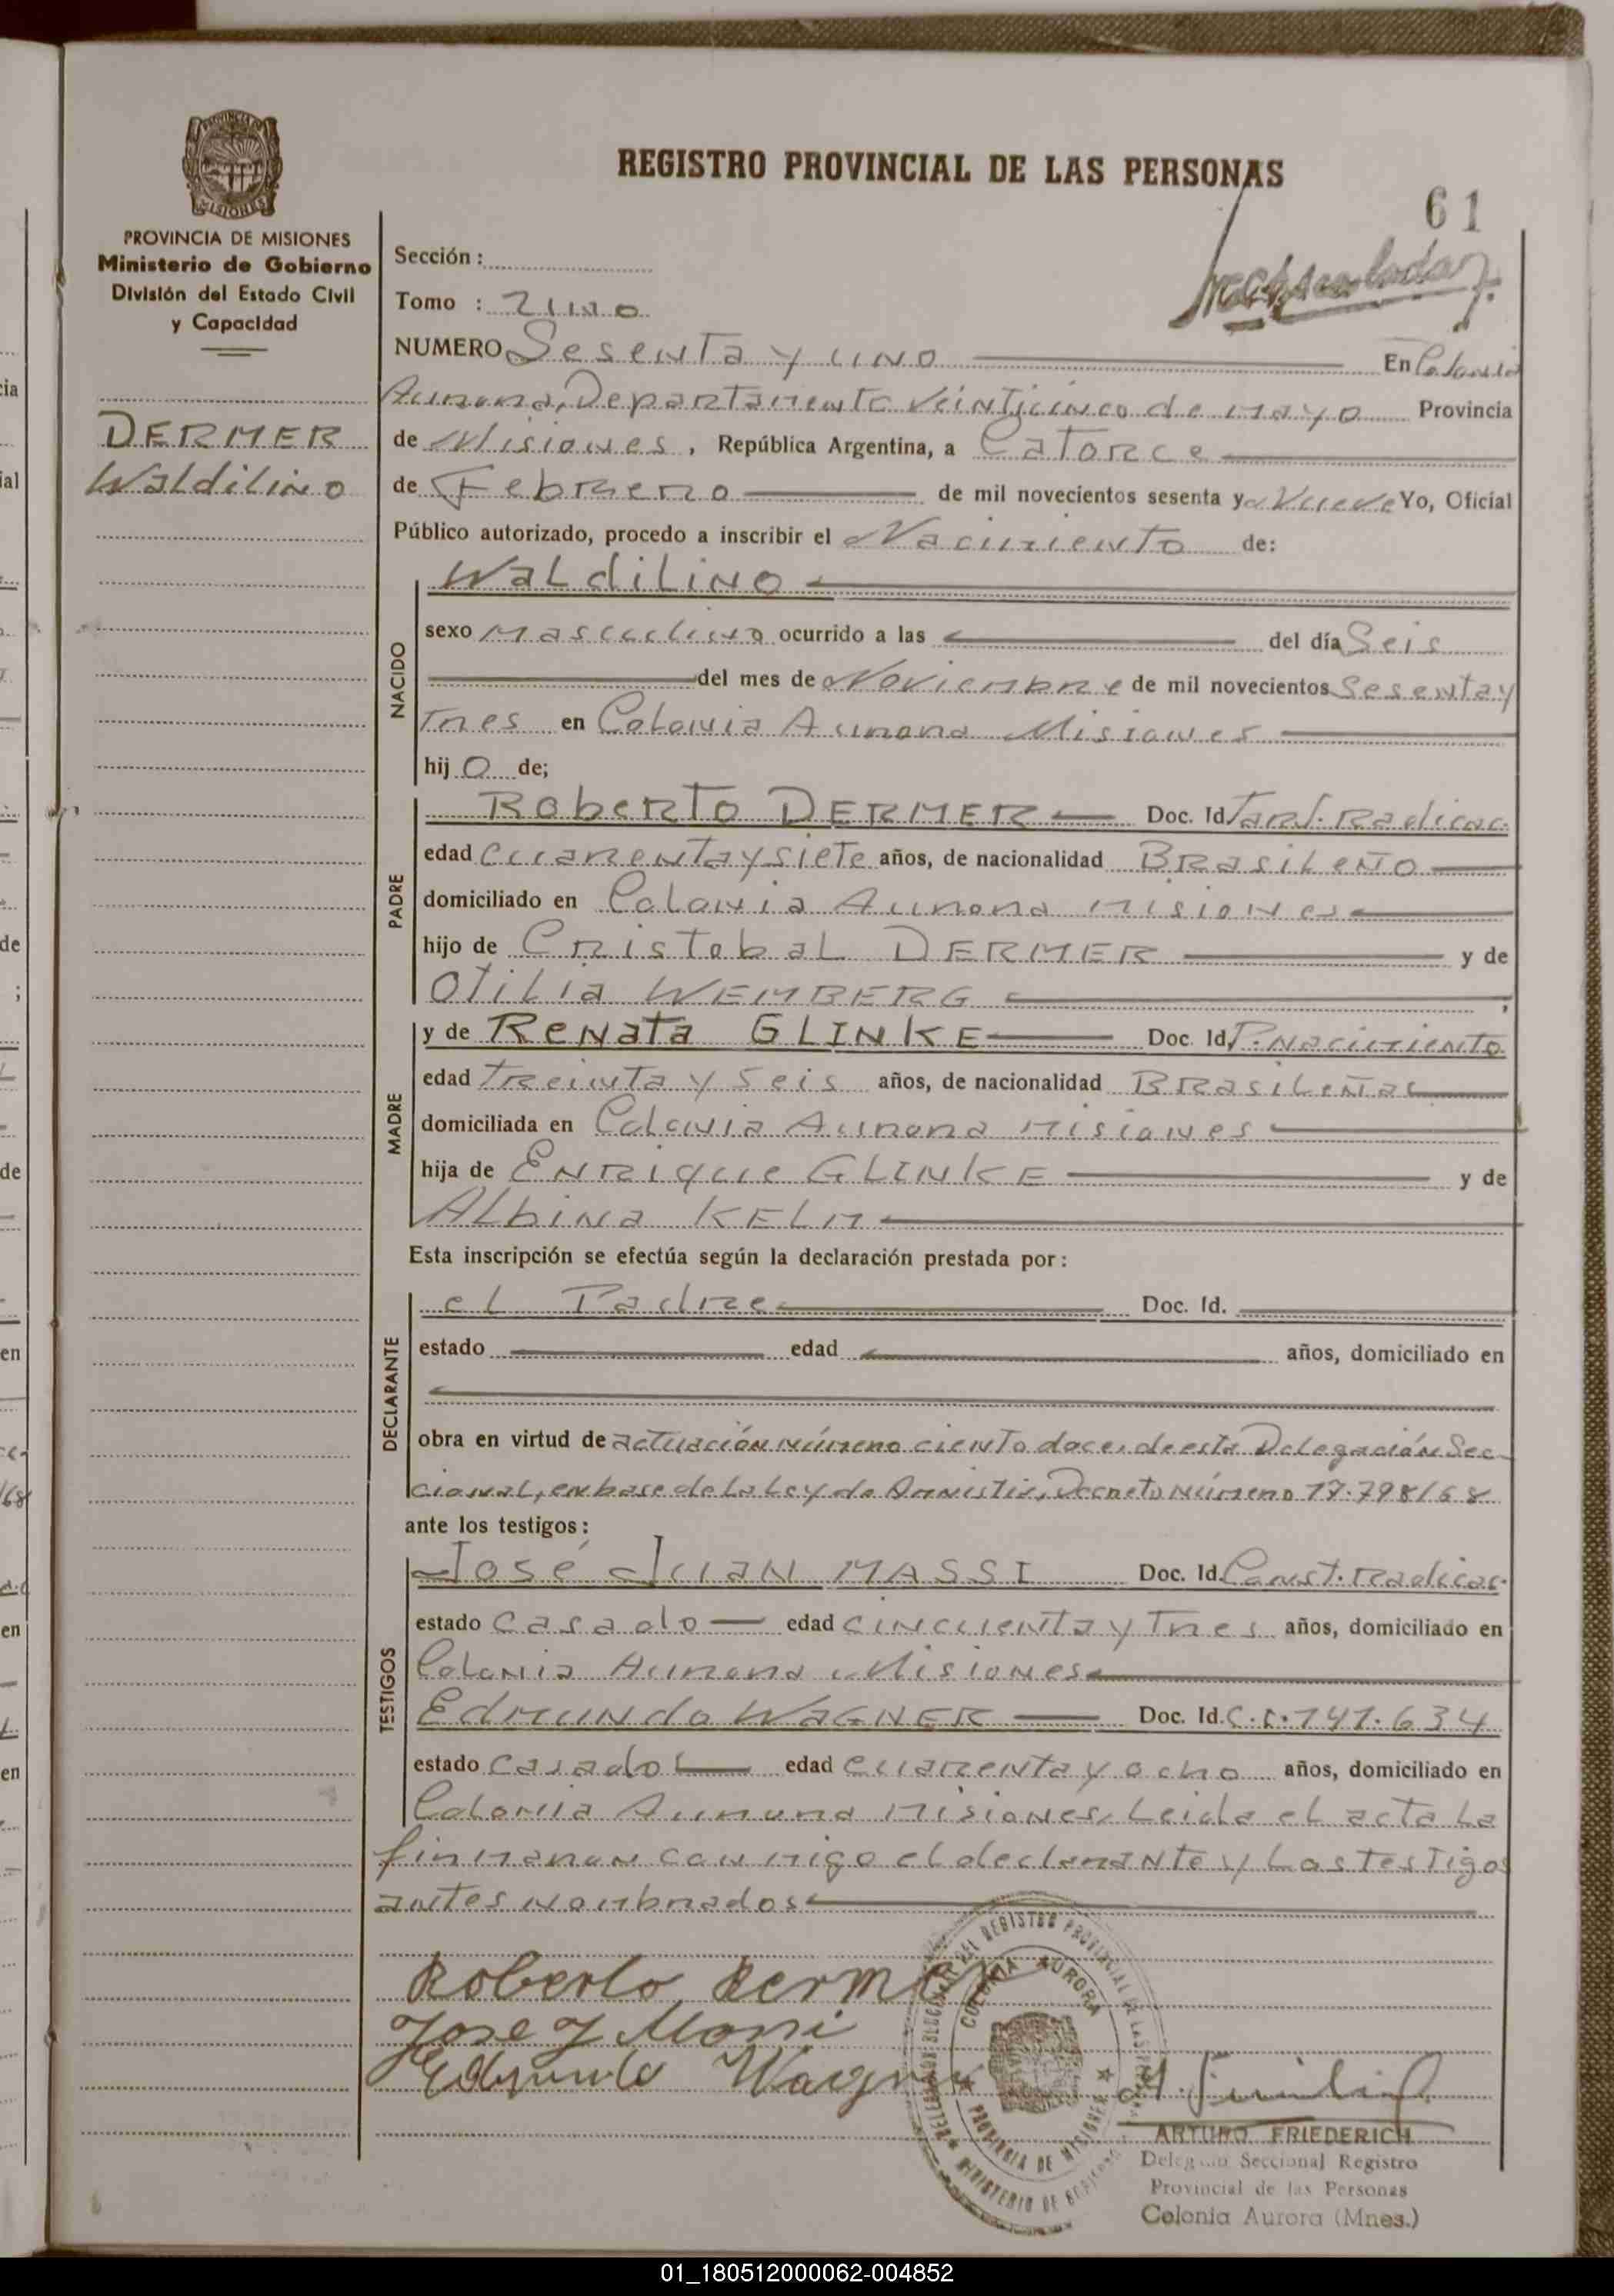 REGISTRO PROVINCIAL DE LAS PERSONAS
61
PROVINCIA DE MISIONES
Ministerio de Gobierno
División del Estado Civil
y Capacidad
DERMER
Waldilino
Sección :
Tomo : Uno
NUMERO Sesenta y uno En Colonia
Aurora, Departamento Veinticinco de Mayo Provincia
de Misiones, República Argentina, a Catorce
de Febrero de mil novecientos sesenta y Nueve Yo, Oficial
Público autorizado, procedo a inscribir el Nacimiento de:
NACIDO
WaLdiLiNO
sexo Masculino ocurrido a las del día Seis
del mes de Noviembre de mil novecientos Sesenta y
Tres en Colonia Aurora Misiones
hij o de;
PADRE
Roberto DERMER Doc. Id Tarj. Radicac.
edad cuarenta y siete años, de nacionalidad BrasiLeño
domiciliado en Colonia Aurora Misiones
hijo de Cristobal DERMER y de
Otilia WEMBERG ;
MADRE
y de Renata GLINKE Doc. Id. P. Nacimiento
edad treinta y seis años, de nacionalidad BrasiLeña
domiciliada en Colonia Aurora Misiones
hija de Enrique GLINKE y de
Albina KELM
Esta inscripción se efectúa según la declaración prestada por:
DECLARANTE
el Padre Doc. Id.
estado edad años, domiciliado en
obra en virtud de actuación número ciento doce, de esta Delegación Sec-
cional, en base de la Ley de Amnistia, Decreto Número 17.798/68
ante los testigos:
TESTIGOS
José Juan MASSI Doc. Id. Const. Radicac.
estado casado edad cincuenta y Tres años, domiciliado en
Colonia Aurora Misiones
Edmundo WAGNER Doc. Id. C.I. 141.634
estado casado edad cuarenta y ocho años, domiciliado en
Colonia Aurora Misiones. Leida el acta la
firmaron conmigo el declarante y los testigos
antes nombrados
Roberto Dermer
Jose J Massi
Edmundo Wagner
COLONIA AURORA
PROVINCIA DE MISIONES
ARTURO FRIEDERICH
Delegado Seccional Registro
Provincial de las Personas
Colonia Aurora (Mnes.)
01_180512000062-004852